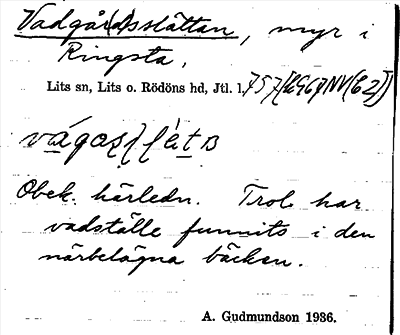 Vadgår(d)sslåttan, myr i
Ringsta,
Lits sn, Lits o. Rödöns hd, Jtl. l. 757
Obek. härledn. Trol. har
vadställe funnits i den
närbelägna bäcken.
A. Gudmundson 1936.